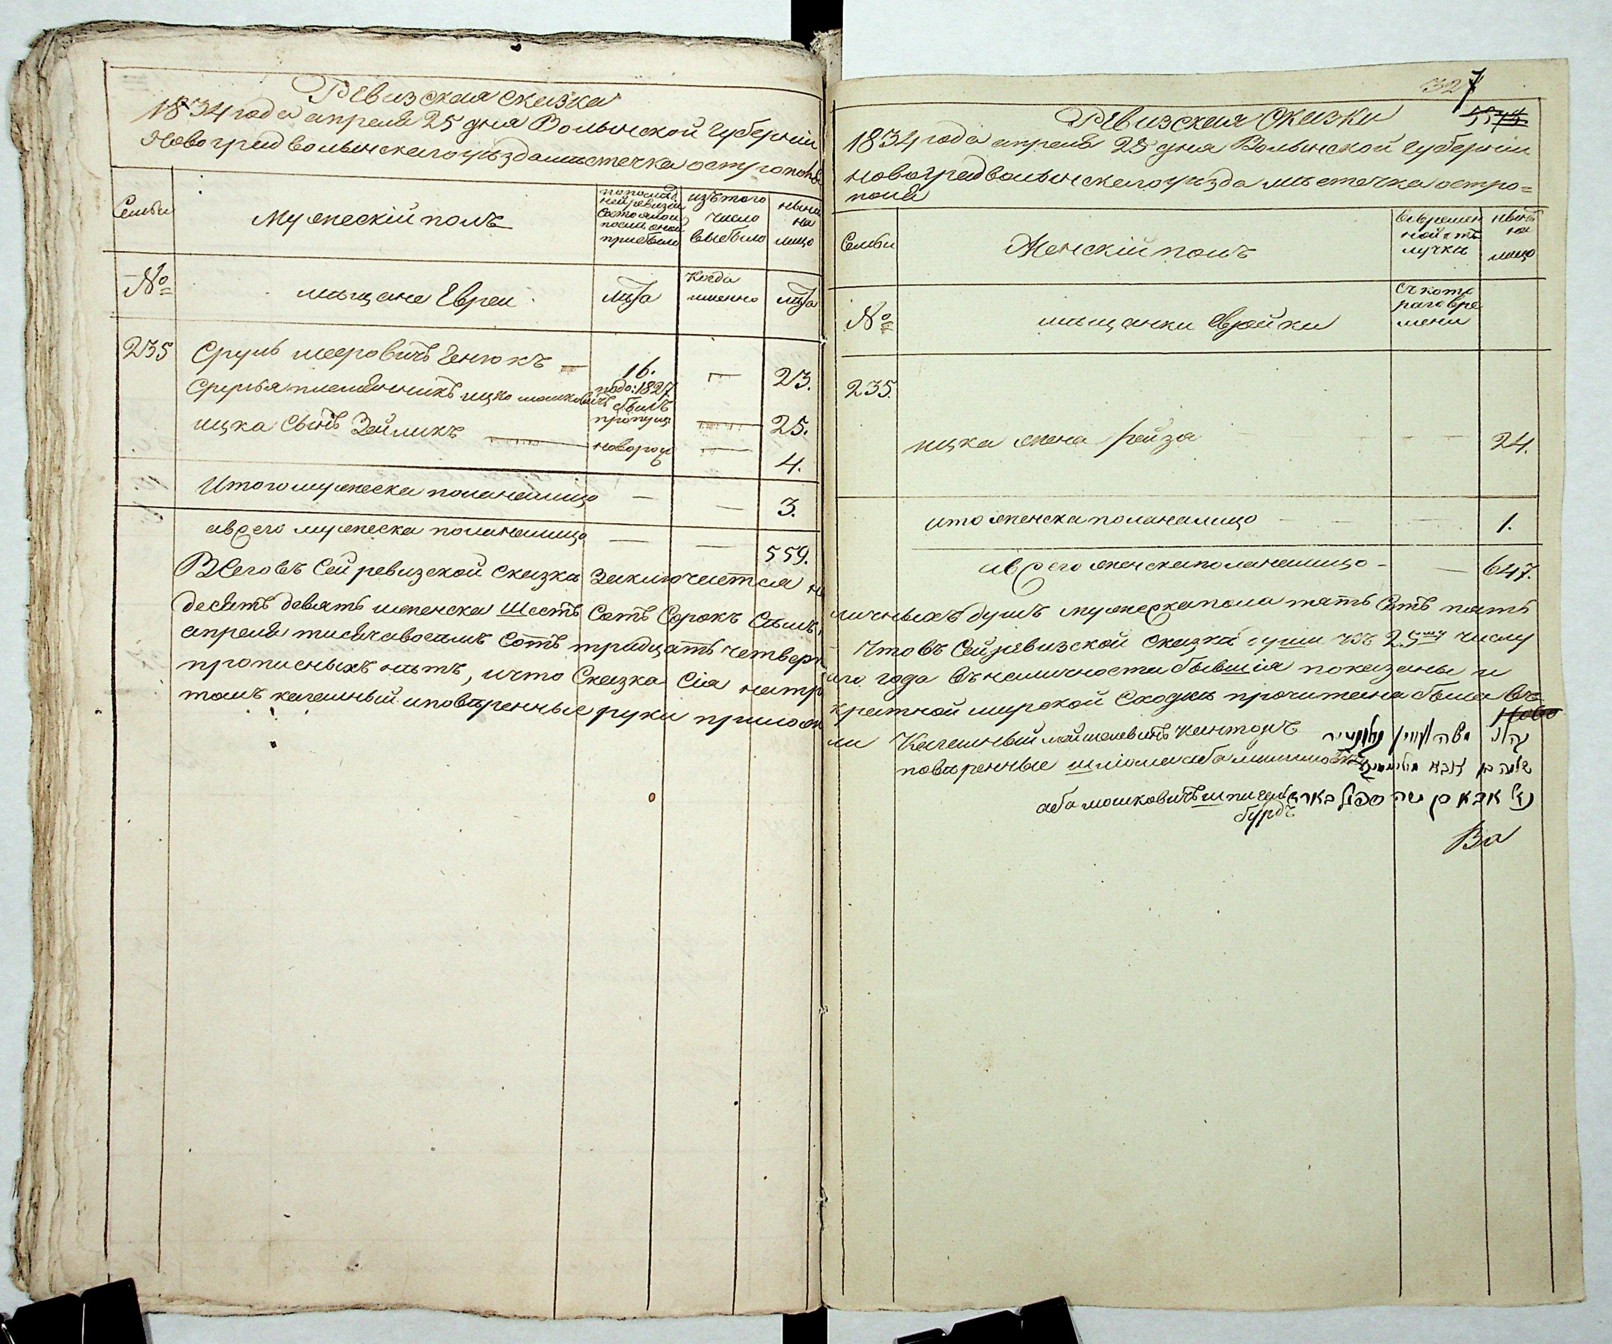 Ревизская сказка
1834 года апреля 25 дня Волынской губерніи
Новоградволынскаго уѣзда мѣстечка
Семьи
Мужескій полъ
изъ того
число
выбыло
нынѣ
на
лицо
№
мѣщане Евреи
лѣта
когда
именно
лѣта
235
Сруль Шеровичъ Генюкъ
16.
23.
Сруля племянникъ ицко мошковичъ
1827
былъ
25.
ицка сынъ Зейликъ
новорож
4.
Итого мужеска пола налицо
3.
а всего мужеска пола налицо
559.
Всего въ сей ревизской сказкѣ заключается на
десятъ девять женска шесть сотъ сорокъ семь
апреля тысяча восемь сотъ тридцать четверт
прописныхъ нѣтъ, и что сказка сія на тр
томъ кагальный и повѣренные руки прилож
327
Ревизская Сказка
1834 года апреля 25 дня Волынской губерніи
новоградволынскаго уѣзда мѣстечка остро=
поля
Семьи
Женскій полъ
нынѣ
на
лицо
№
мѣщанки Еврейки
съ кото
раго вре
мени
235.
ицка жена Рейза
24.
итого женска пола налицо
1.
а всего женска пола налицо
647.
личныхъ душъ мужеска пола пять сотъ пять
Что въ сей ревизской сказкѣ души къ 25му числу
го года въ наличности бывшія показаны и
кратной мирской сходкѣ прочитана была
ли Кагальный Канторъ
повѣренные шліома аба
аба мошковичъ шпигель
бурдъ
Во